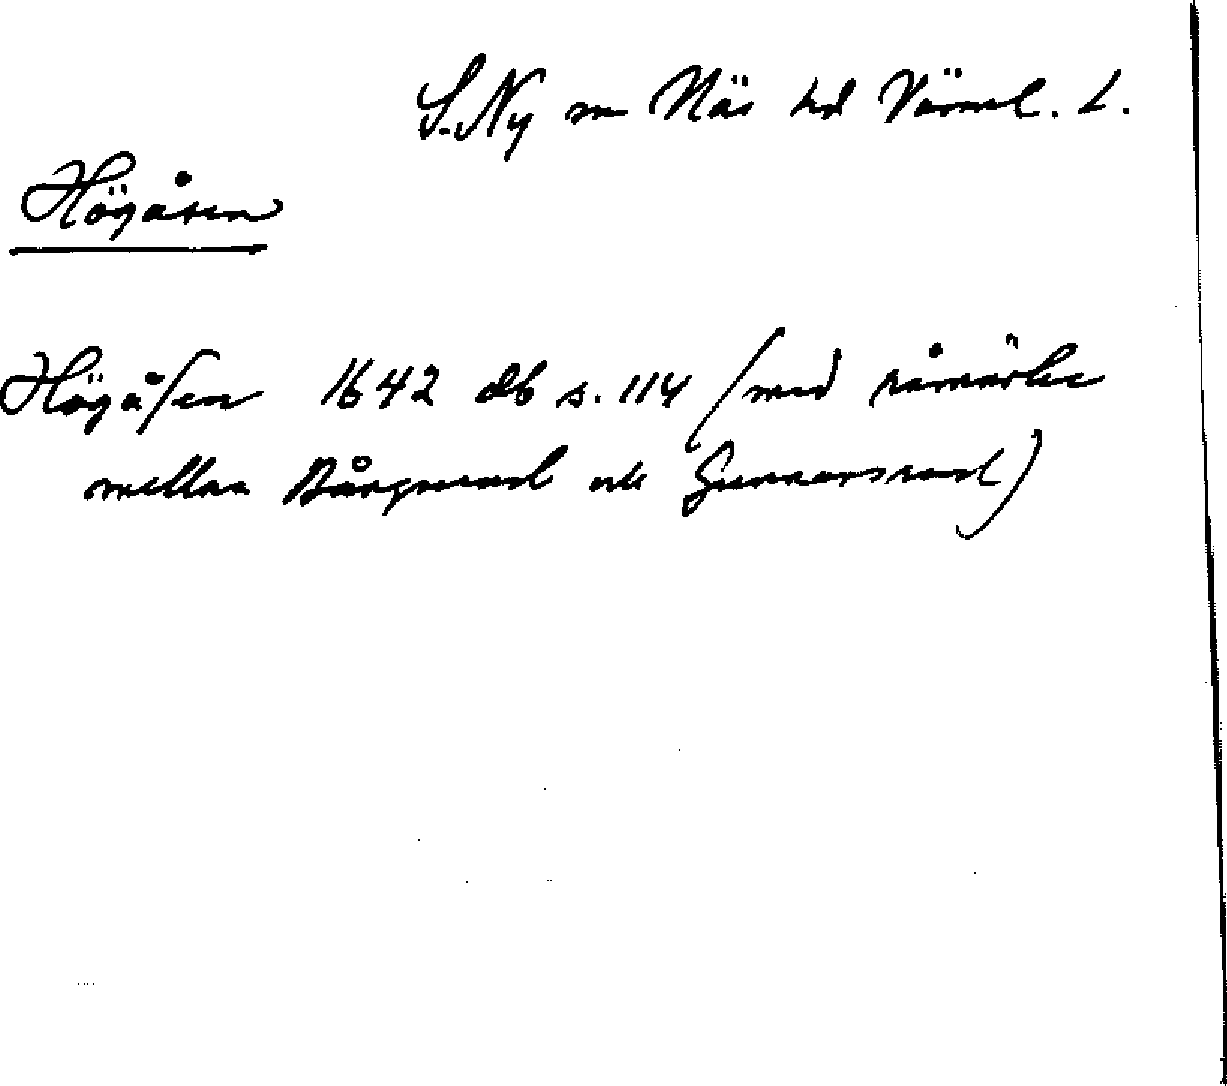 S. Ny sn Näs hd Värml. L.
Högåsen
Högåsen 1642 db s. 114 (med råmärke
mellan Bårgerud och Gunnarsrud)